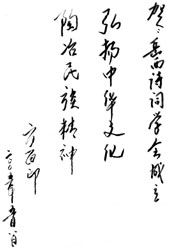 贺岳西诗词学会成立
弘扬中华文化
陶冶民族精神
二〇〇五年